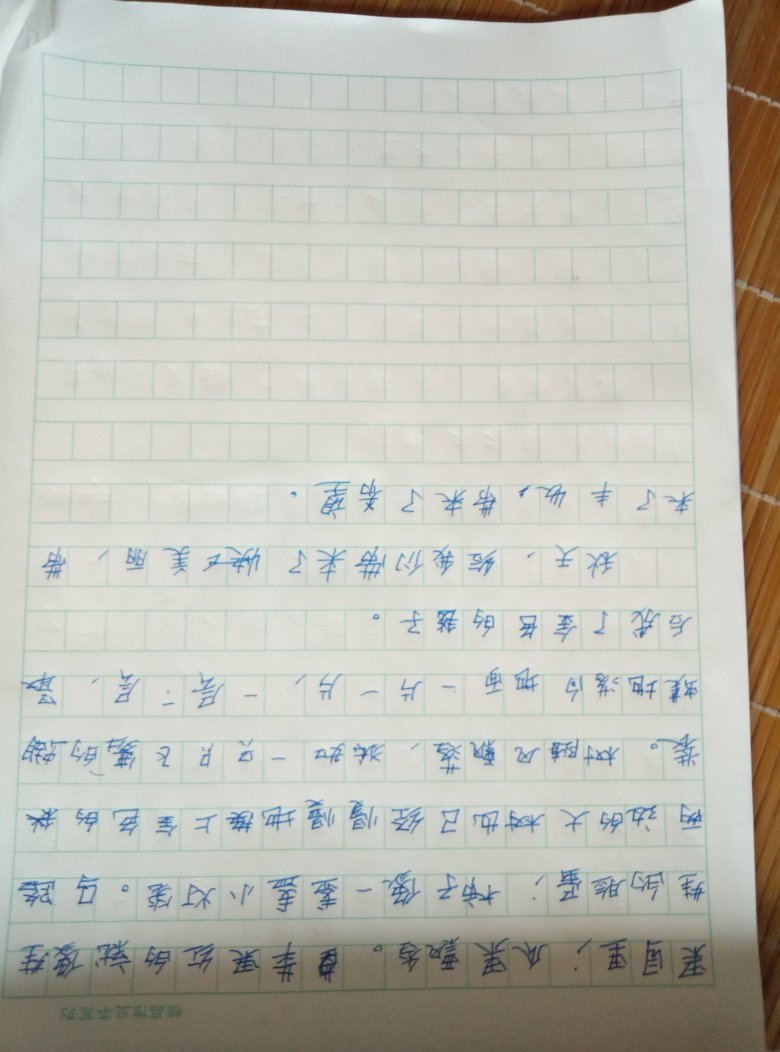 果园里，瓜果飘香。苹果红的就像娃
娃的脸蛋；柿子像一盏盏小灯笼。马路
两边的大树也已经慢慢地换上金色的秋
装。树随风飘落，犹如一只只飞舞的蝴
蝶地落向地面一片一片，一层一层，最
后成了金色的毯子。
秋天，给我们带来了美丽，带
来了丰收，带来了希望。